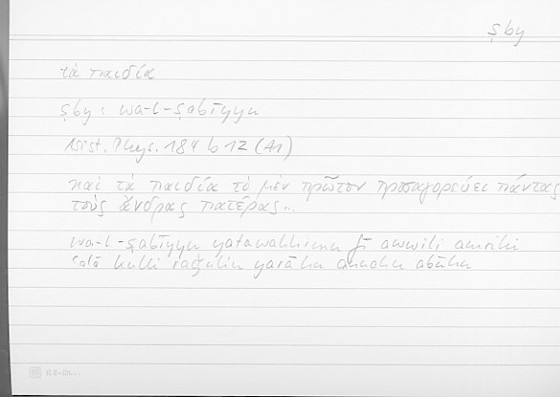 ṣby
τὰ παιδία
ṣby : wa-l-ṣabīyu
Arist. Phys. 184 b 12 (A1)
καὶ τὰ παιδία τὸ μὲν πρῶτον προσαγορεύει πάντας
τοὺς ἄνδρας πατέρας...
wa-l-ṣabīyu yatawahhimu fī awwili amrihi
ʿalā kulli raǧulin yarāhu annahu abūhu